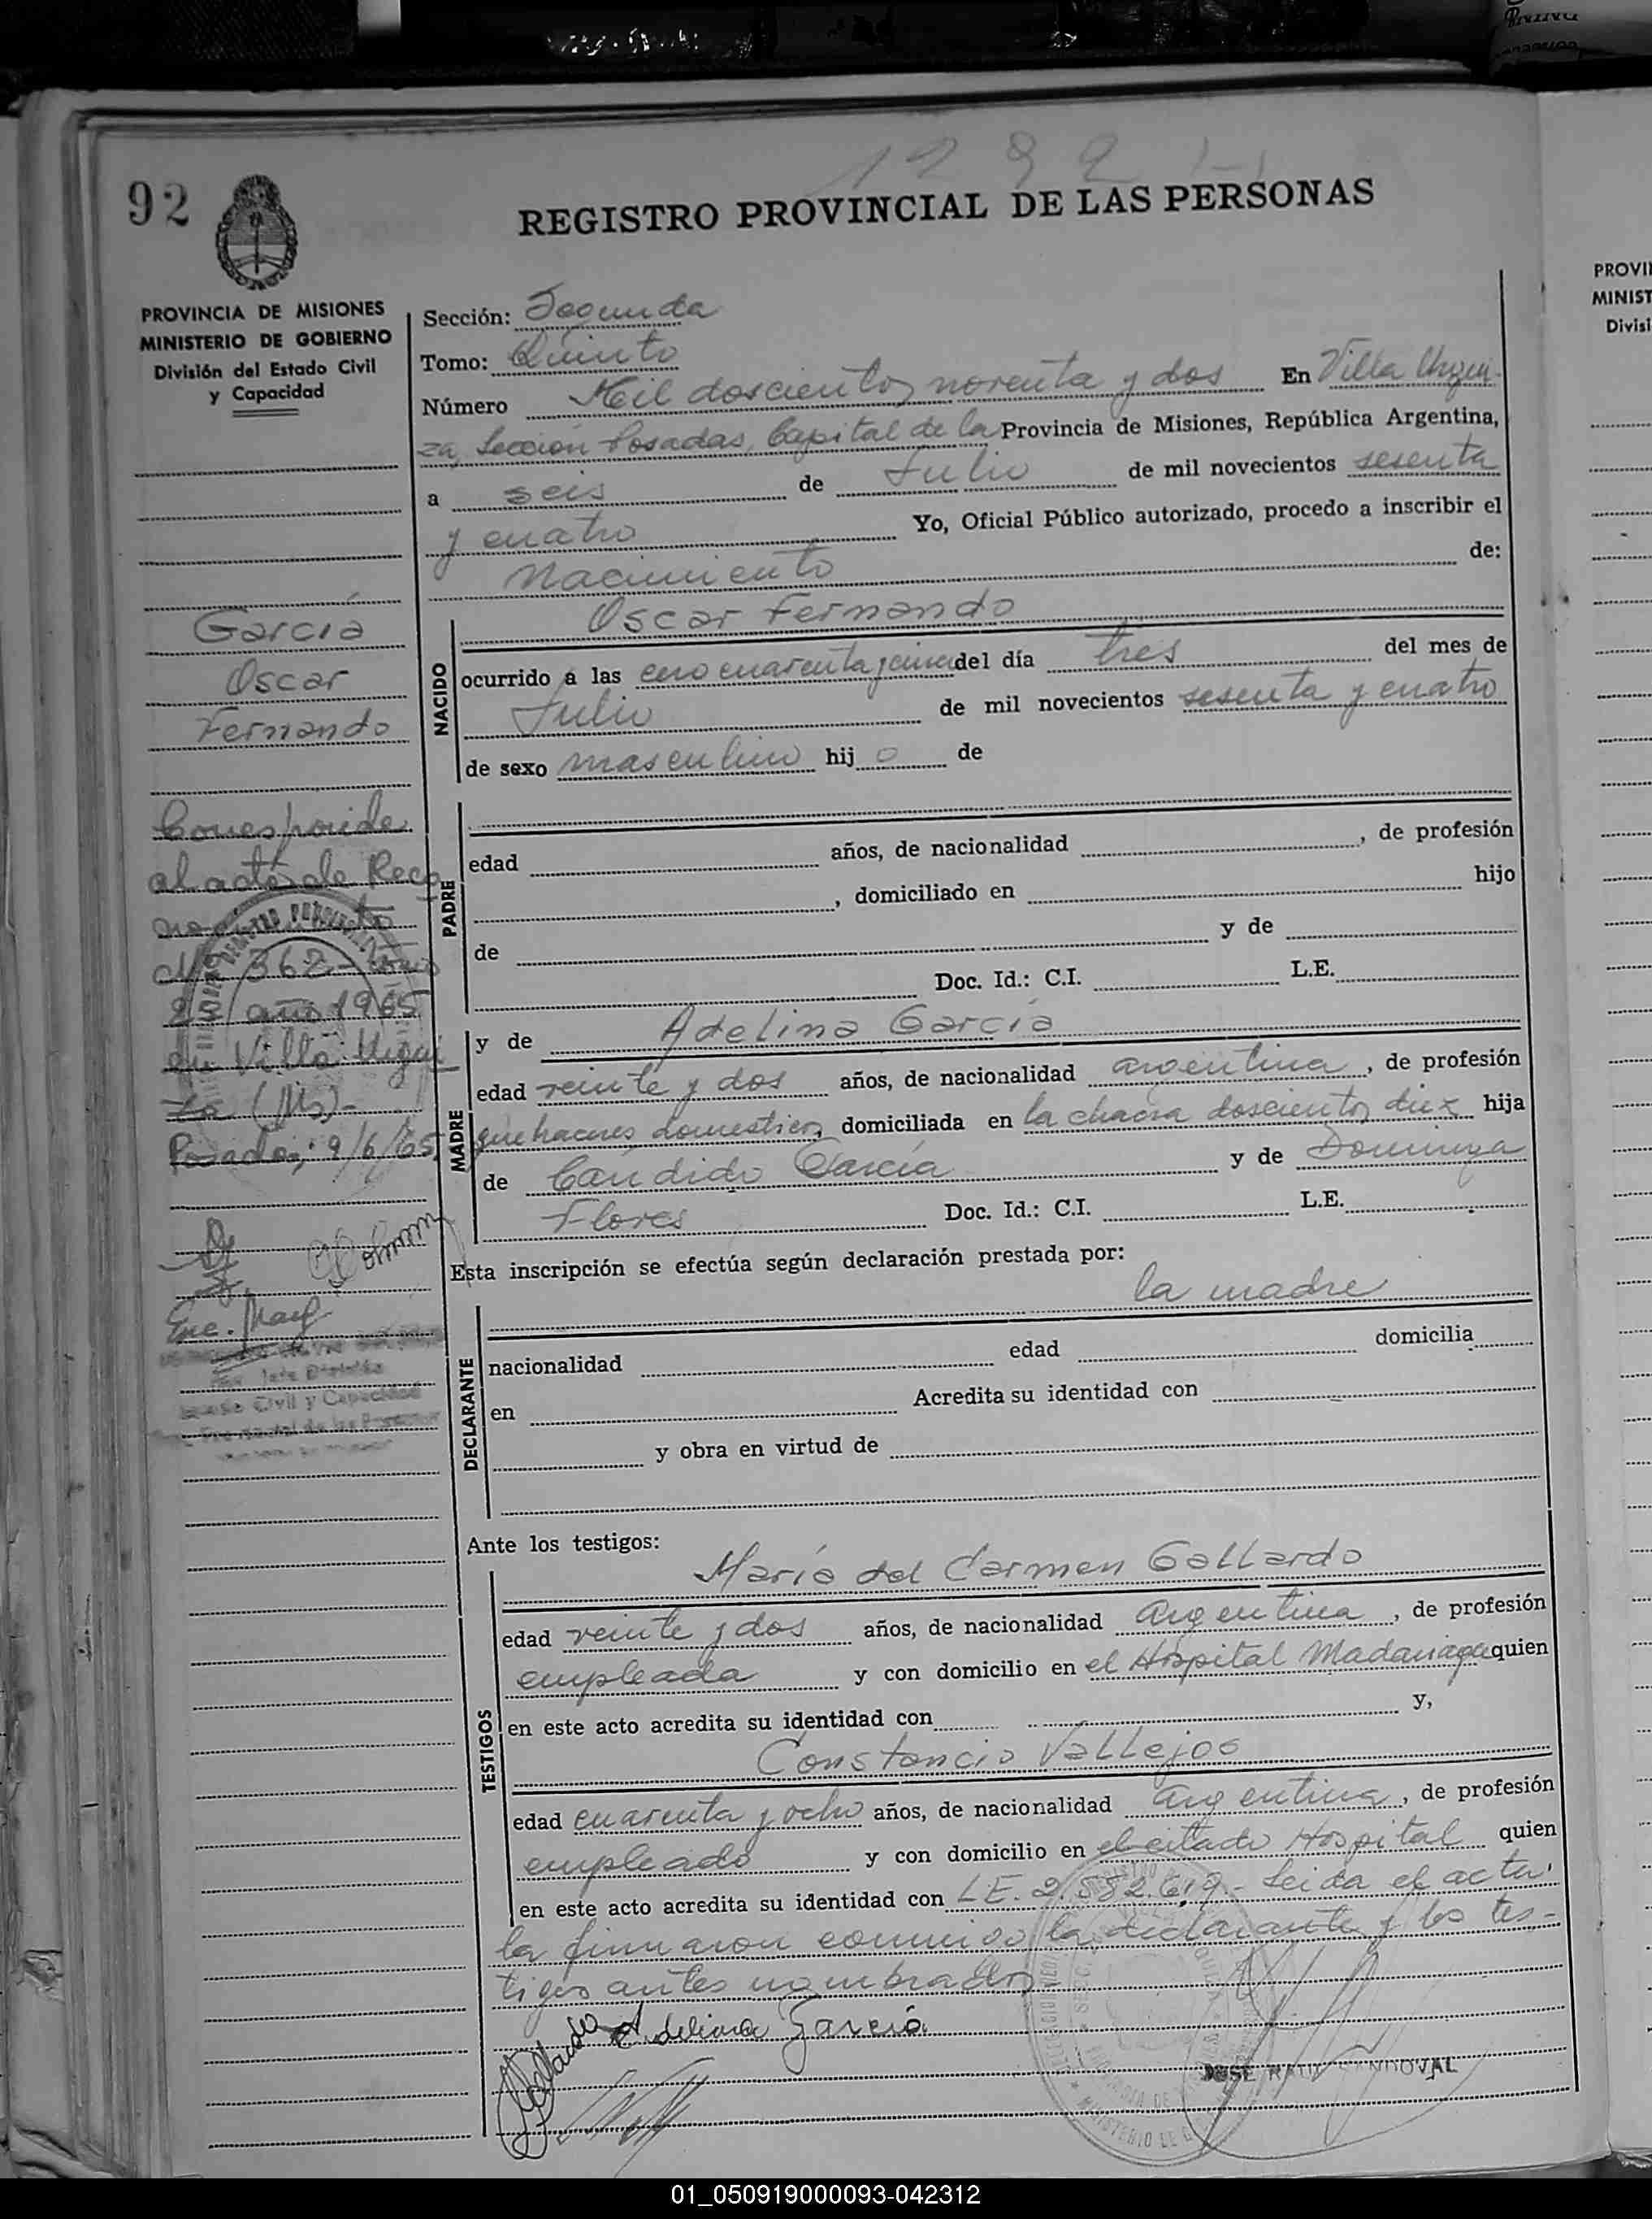 1292
92
REGISTRO PROVINCIAL DE LAS PERSONAS
PROVINCIA DE MISIONES
MINISTERIO DE GOBIERNO
División del Estado Civil
y Capacidad
García
Oscar
Fernando
Corresponde
al acta de Reco
nocimiento
Nº 362 - tomo
2º año 1965
en Villa Urqui
za (Ms)-
Posadas, 9/6/65
Enc.
Jefe División
Civil y Capacidad
Sección: Segunda
Tomo: Quinto
Número Mil doscientos noventa y dos En Villa Urqui-
za, Sección Posadas, Capital de la Provincia de Misiones, República Argentina,
a seis de Julio de mil novecientos sesenta
y cuatro Yo, Oficial Público autorizado, procedo a inscribir el
nacimiento de:
Oscar Fernando
NACIDO
ocurrido a las cero cuarenta y cinco del día tres del mes de
Julio de mil novecientos sesenta y cuatro
de sexo masculino hijo de
PADRE
edad años, de nacionalidad , de profesión
, domiciliado en hijo
de y de
Doc. Id.: C.I. L.E.
MADRE
y de Adelina García
edad veinte y dos años, de nacionalidad argentina, de profesión
quehaceres domesticos, domiciliada en la chacra doscientos diez hija
de Cándido García y de Dominga
Flores Doc. Id.: C.I. L.E.
Esta inscripción se efectúa según declaración prestada por:
la madre
DECLARANTE
nacionalidad edad domicilia
en Acredita su identidad con
y obra en virtud de
Ante los testigos:
TESTIGOS
María del Carmen Gallardo
edad veinte y dos años, de nacionalidad argentina, de profesión
empleada y con domicilio en el Hospital Madariaga quien
en este acto acredita su identidad con y,
Constancio Vallejos
edad cuarenta y ocho años, de nacionalidad argentina, de profesión
empleado y con domicilio en el citado Hospital quien
en este acto acredita su identidad con L.E. 2.582.619.- Leida el acta
la firmaron conmigo la declarante y los tes-
tigos antes nombrados
Gallardo Adelina García
JOSE RAUL SANDOVAL
PROVI
MINIST
Divisi
01_050919000093-042312